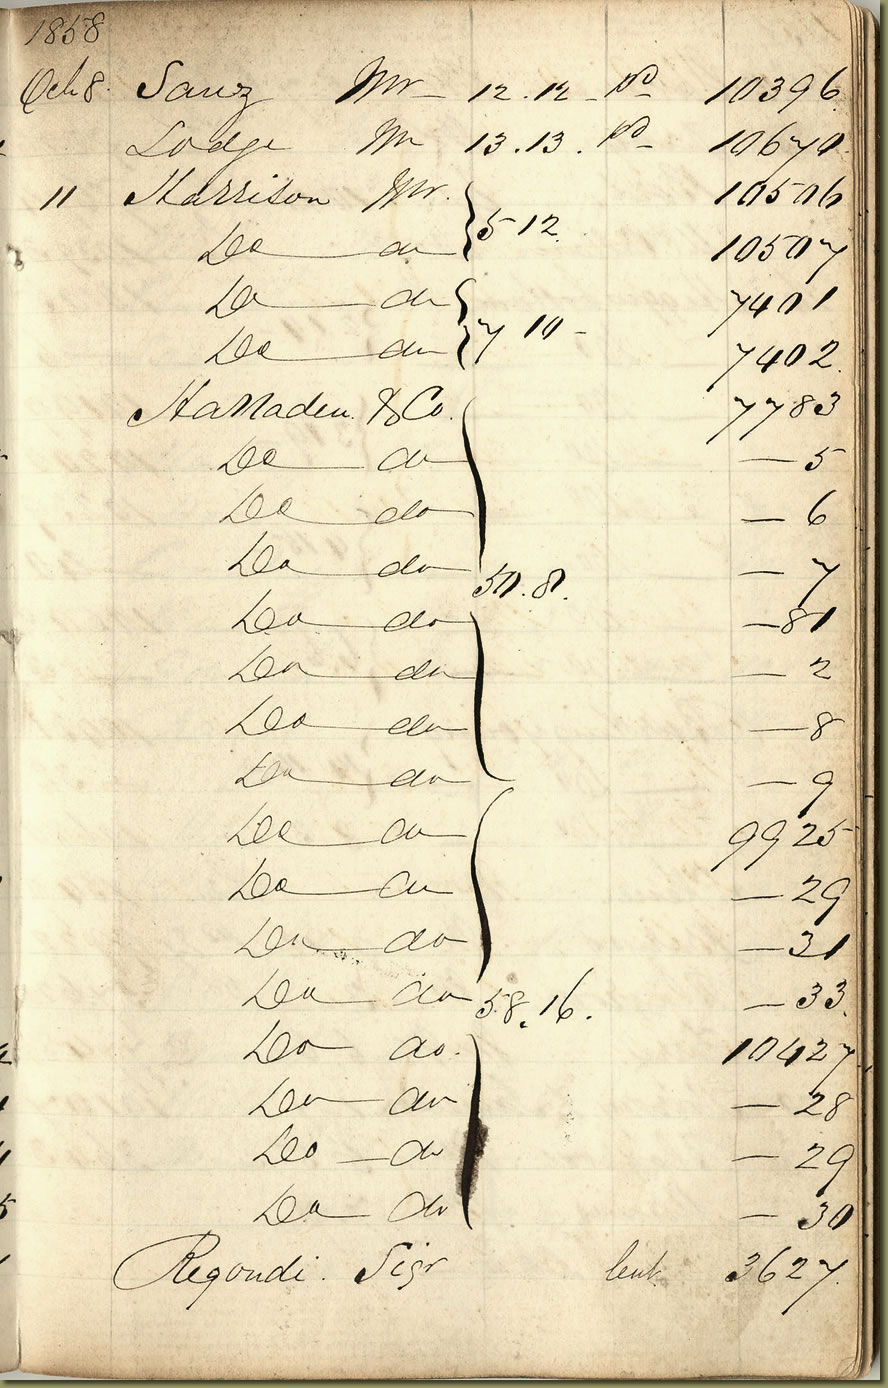 1858
Oct 8. Sanz Mr 12.12 - pd 10396
Lodge Mr 13.13. pd 10670
11 Harrison Mr. 10506
Do do 5 12. 10507
Do do 7401
Do do 7 10 - 7402
Harraden & Co. 7783
Do do — 5
Do do — 6
Do do — 7
50.8.
Do do — 81
Do do — 2
Do do — 8
Do do — 9
Do do 9925
Do do — 29
Do do — 31
Do do 58.16. — 33
Do do. 10427
Do do — 28
Do do — 29
Do do — 30
Regondi. Sigr lent 3627.